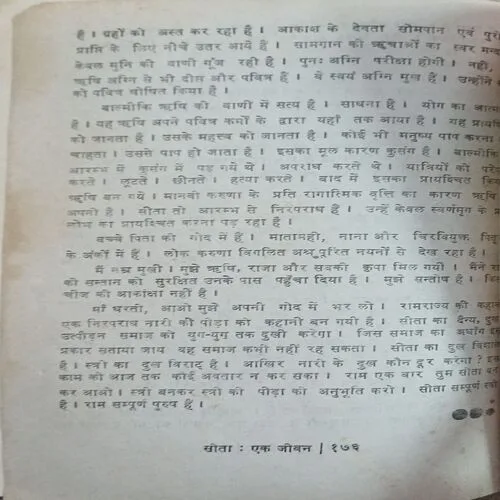 है । ग्रहों को अस्त कर रहा है । आकाश के देवता सोमपान एवं पुरो
प्राप्ति के लिए नीचे उतर आये हैं । सामगान की ऋचाओं का स्वर मन्द
केवल मुनि की वाणी गूँज रही है । पुनः अग्नि परीक्षा होगी । नहीं,
ऋषि अग्नि से भी दीप्त और पवित्र हैं । वे स्वयं अग्नि मूल हैं । उन्होंने
को पवित्र घोषित किया है ।
वाल्मीकि ऋषि की वाणी में सत्य है । साधना है । योग का आत्म
है । यह ऋषि अपने पवित्र कर्मों के द्वारा यहाँ तक आया है । यह प्रायश्चित
को जानता है । उसके महत्त्व को जानता है । कोई भी मनुष्य पाप करना
चाहता । उससे पाप हो जाता है । इसका मूल कारण कुसंग है । वाल्मीकि
आरम्भ में कुसंग में पड़ गये थे । अपराध करते थे । यात्रियों को परे
करते । लूटते । छीनते । हत्या करते । बाद में इसका प्रायश्चित कि
ऋषि बन गये । मानवी करुणा के प्रति रागात्मिक वृत्ति का कारण ऋषि
अपनी है । सीता तो आरम्भ से निरपराध हैं । उन्हें केवल स्वर्णमृग के
लोभ का प्रायश्चित करना पड़ रहा है ।
बच्चे पिता की गोद में हैं । मातामही, नाना और चिरवियुक्त पितृ
के अंकों में हैं । लोक करुणा विगलित अश्रुपूरित नयनों से देख रहा है ।
मैं नम्र मुखी । मुझे ऋषि, राजा और सबकी कृपा मिल गयी । मैंने रा
की सन्तान को सुरक्षित उनके पास पहुँचा दिया है । मुझे सन्तोष है । किस
चीज की आकांक्षा नहीं है ।
माँ धरती, आओ मुझे अपनी गोद में भर लो । रामराज्य की कहानी
एक निरपराध नारी की पीड़ा की कहानी बन गयी है । सीता का दैन्य, दुख
उत्पीड़न समाज को युग-युग तक दुखी करेगा । जिस समाज का अर्धांग इस
प्रकार सताया जाय वह समाज कभी नहीं रह सकता । सीता का दुख विराट
है । स्त्री का दुख विराट् है । आखिर नारी के दुख कौन दूर करेगा ? इस
काम को आज तक कोई अवतार न कर सका । राम एक बार तुम सीता बन
कर आओ । स्त्री बनकर स्त्री की पीड़ा की अनुभूति करो । सीता सम्पूर्ण स्त्री
है । राम सम्पूर्ण पुरुष हैं ।
सीता : एक जीवन / १७६